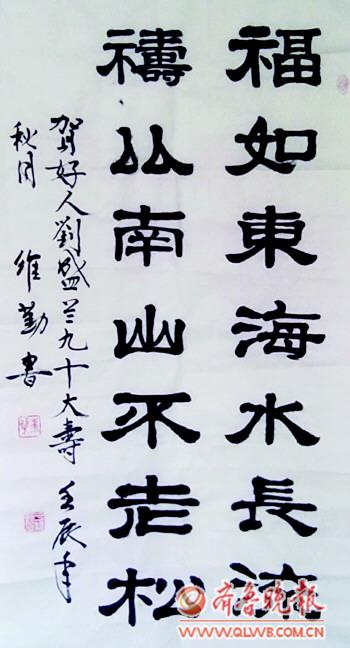 福如東海水長流
禱比南山不老松
賀好人劉盛兰九十大壽 壬辰年
秋月 維勤書
齐鲁晚报
WWW.QLWB.COM.CN